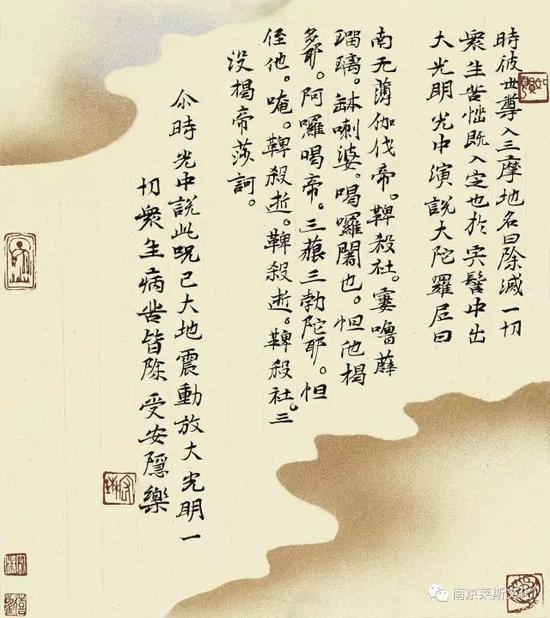 時彼世尊入三摩地名曰除滅一切
衆生苦惱既入定也於宍髻中出
大光明光中演說大陀羅尼曰
南无薄伽伐帝。鞞殺社。窶嚕薜
瑠璃。鉢喇婆。喝囉闍也。怛他揭
多耶。阿囉喝帝。三藐三勃陀耶。怛
侄他。唵。鞞殺逝。鞞殺逝。鞞殺社。三
没揭帝莎訶。
尒時光中說此呪已大地震動放大光明一
切衆生病苦皆除受安隱樂
南京莱斯文